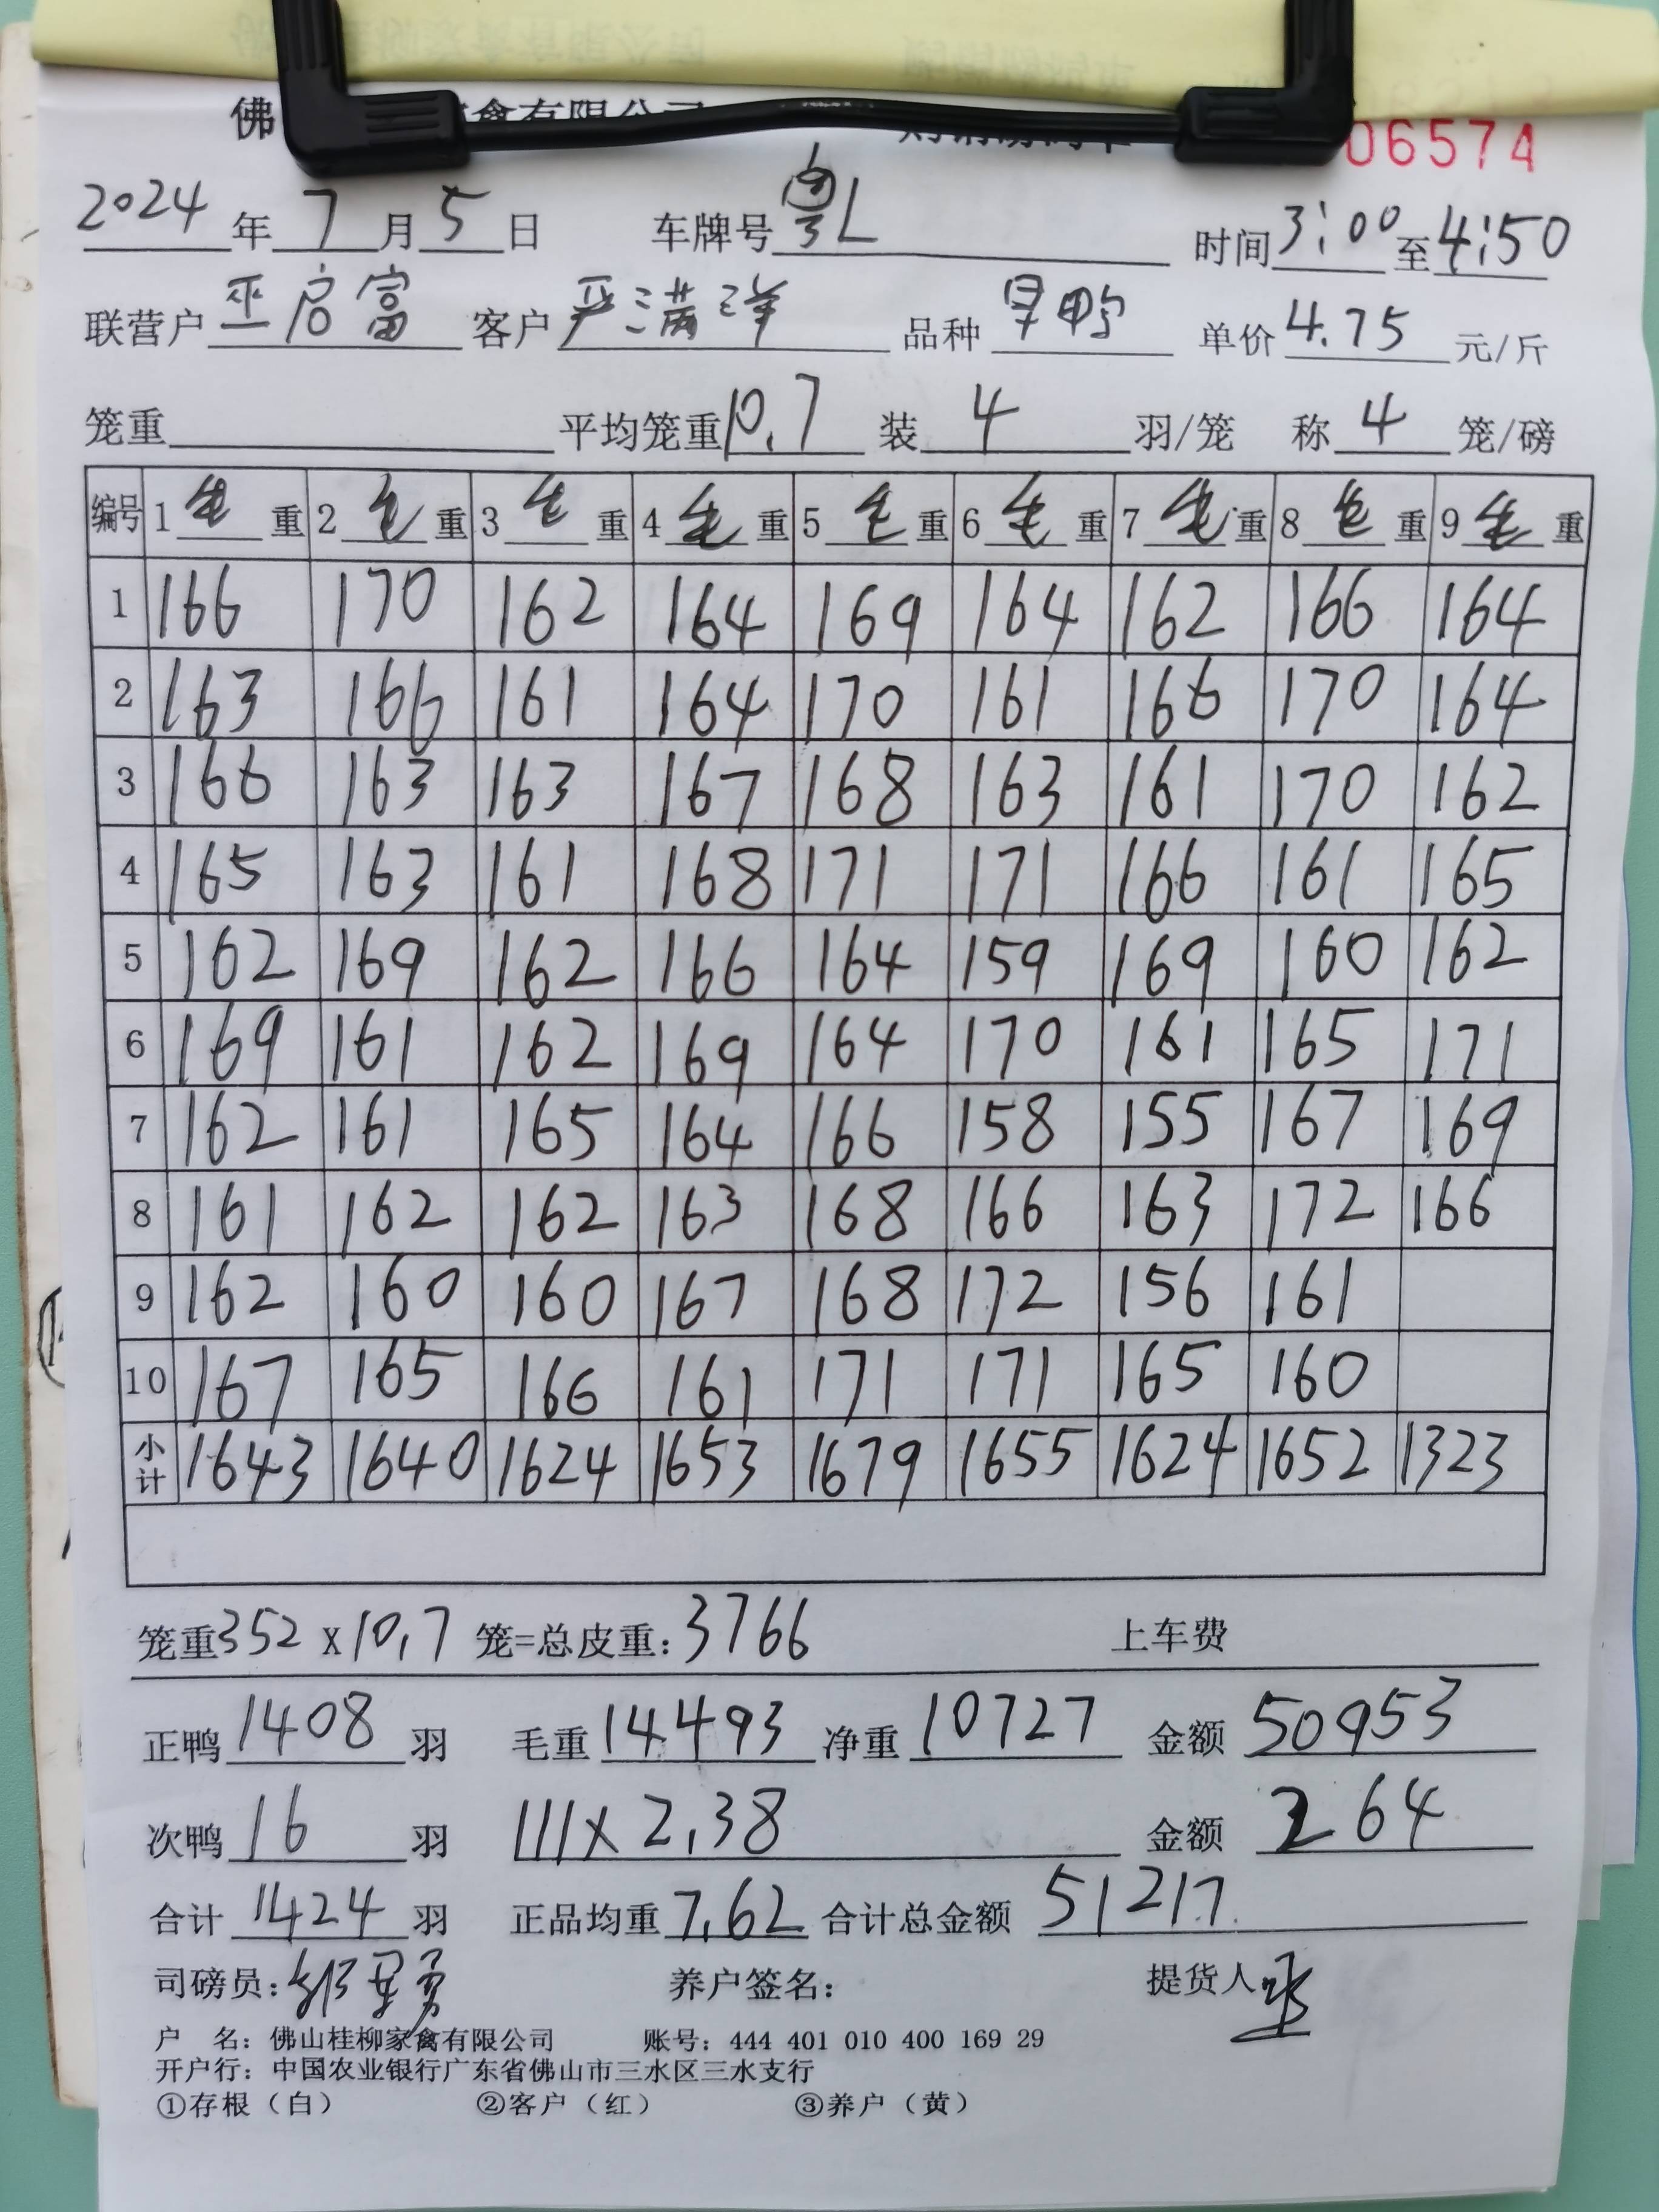 佛 06574
2024年7月5日 车牌号粤L 时间3:00至4:50
联营户巫启富 客户严满洋 品种旱鸭 单价4.75元/斤
笼重 平均笼重10.7 装4羽/笼 称4笼/磅
编号 1毛重 2毛重 3毛重 4毛重 5毛重 6毛重 7毛重 8毛重 9毛重
1 166 170 162 164 169 164 162 166 164
2 163 166 161 164 170 161 166 170 164
3 166 163 163 167 168 163 161 170 162
4 165 163 161 168 171 171 166 161 165
5 162 169 162 166 164 159 169 160 162
6 169 161 162 169 164 170 161 165 171
7 162 161 165 164 166 158 155 167 169
8 161 162 162 163 168 166 163 172 166
9 162 160 160 167 168 172 156 161
10 167 165 166 161 171 171 165 160
小计 1643 1640 1624 1653 1679 1655 1624 1652 1323
笼重352x10.7笼=总皮重:3766 上车费
正鸭1408羽 毛重14493 净重10727 金额50953
次鸭16羽 111x2.38 金额264
合计1424羽 正品均重7.62 合计总金额51217
司磅员: 养户签名: 提货人
户 名:佛山桂柳家禽有限公司 账号:444 401 010 400 169 29
开户行:中国农业银行广东省佛山市三水区三水支行
①存根(白) ②客户(红) ③养户(黄)